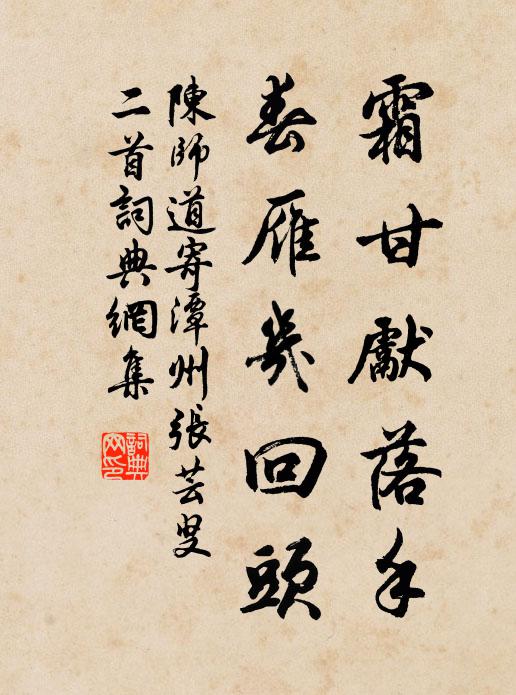 霜甘獻落手
春雁幾回頭
陳師道寄潭州張芸叟
二首詞典網集
詞典網印